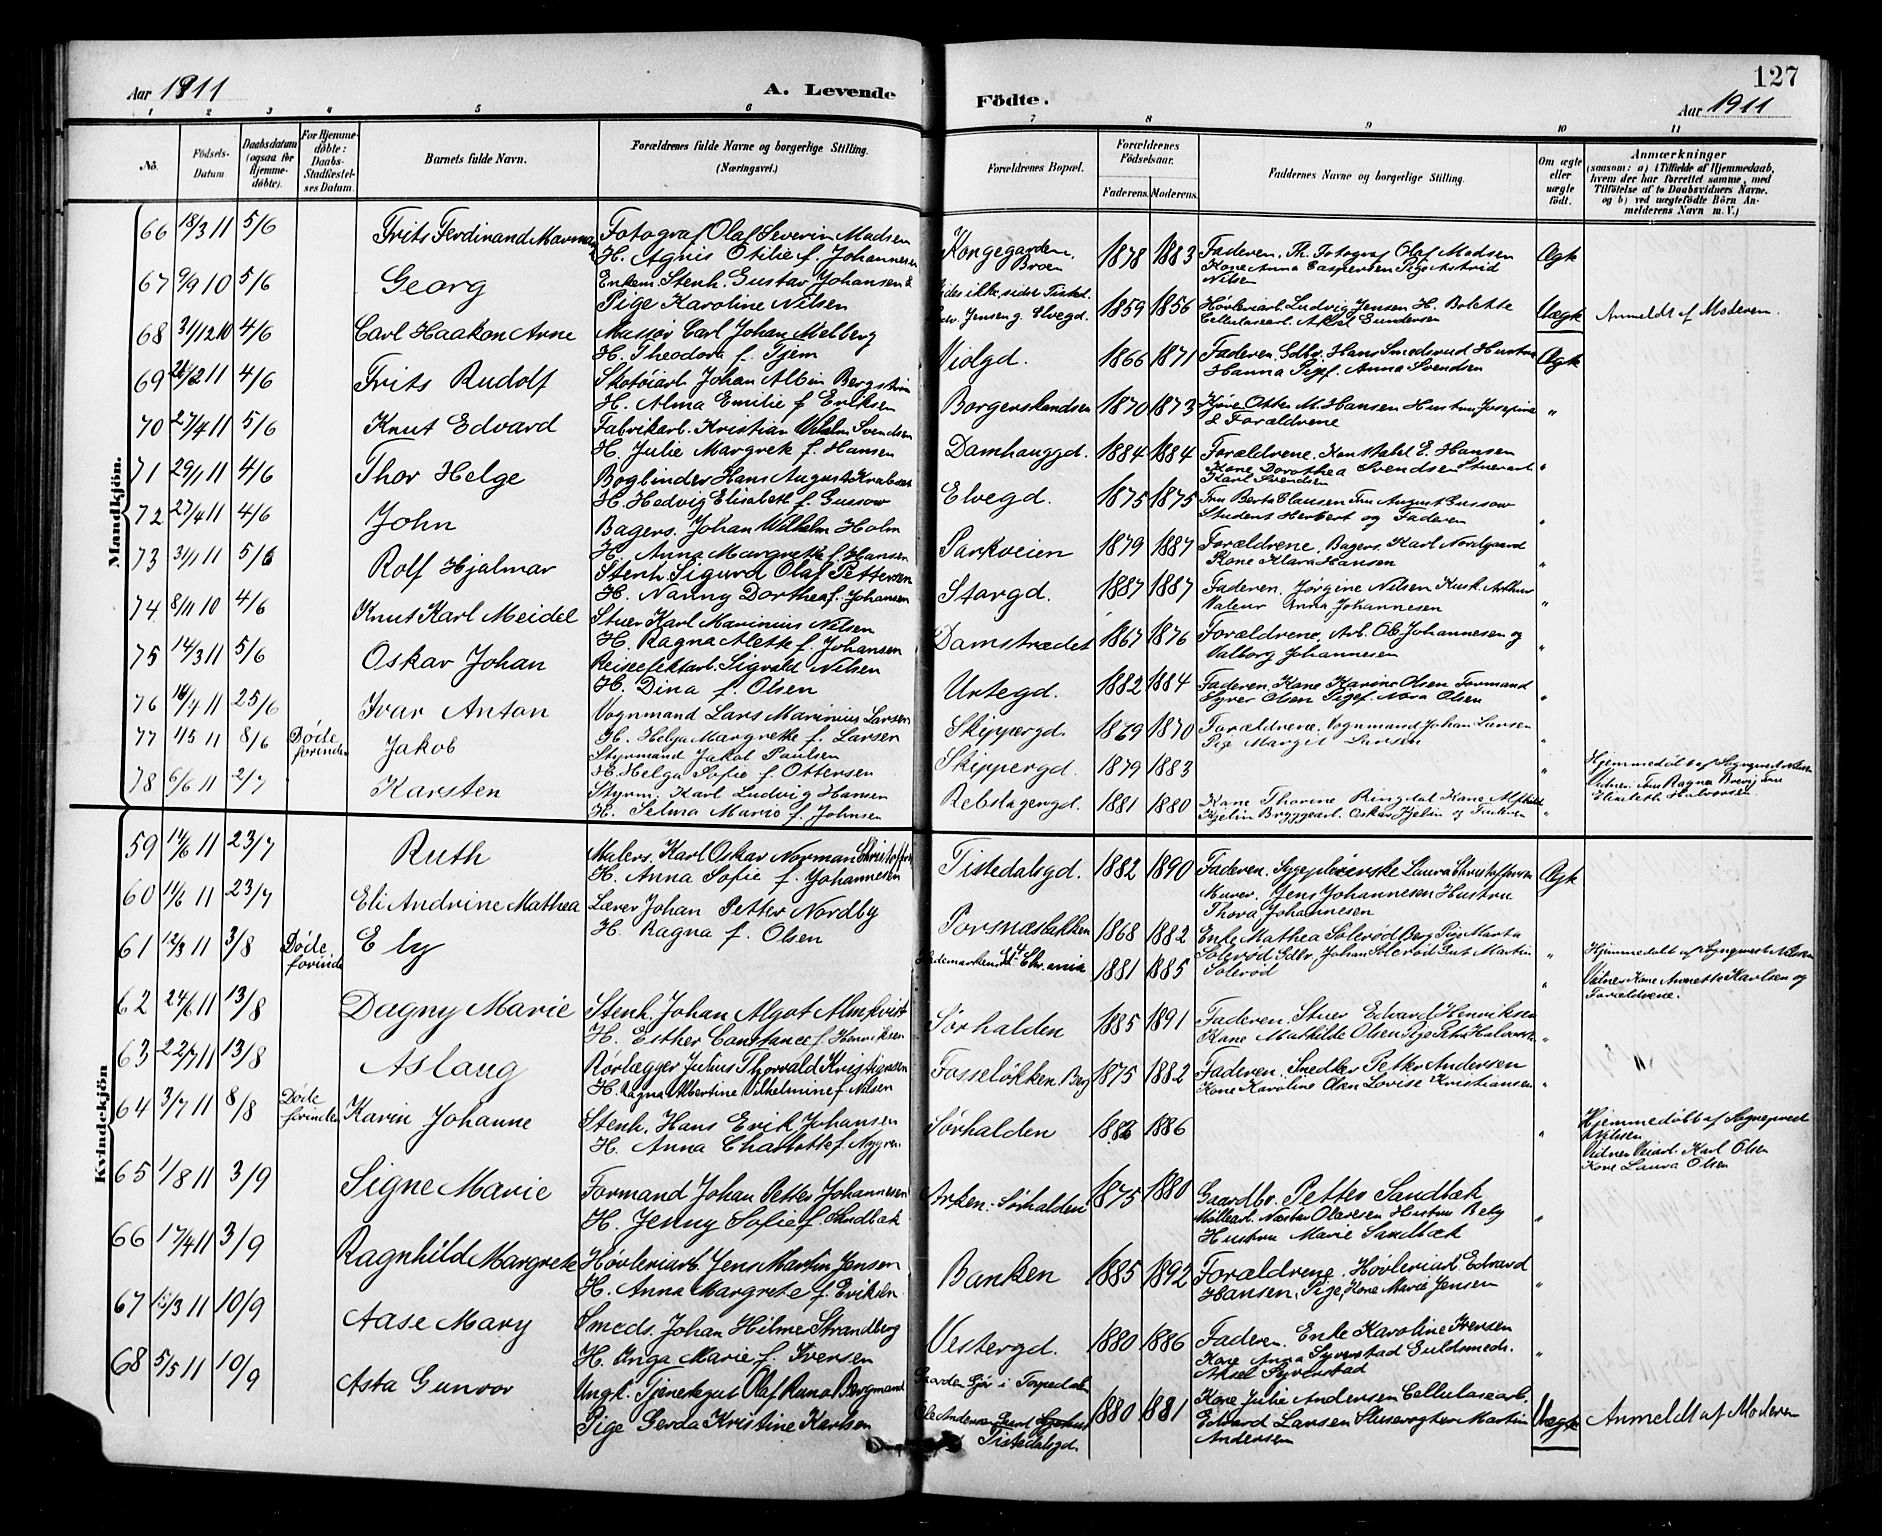 Aar 1911
A. Levende
1 2 3 4 5 6
No. Födsels-Datum. Daabsdatum (ogsaa for Hjemmedöbte). For Hjemmedöbte: Daabs-Stadfæstelses Datum. Barnets fulde Navn. Forældrenes fulde Navne og borgerlige Stilling. (Næringsvei.)
Mandkjön.
66 18/3 11 5/6 Frits Ferdinand Fotograf Olaf Severin Madsen
H. Agnis Otilie f. Johannesen
67 9/9 10 5/6 Georg Enkem. Stenh. Gustav Johansen &
Pige Karoline Nilsen
68 31/12 10 4/6 Carl Haakon Arne Massør Carl Johan Melberg
H. Theodora f. Tjem
69 26/2 11 4/6 Frits Rudolf Skotøiarb. Johan Albin Bergström
H. Alma Emilie f. Eriksen
70 27/4 11 5/6 Knut Edvard Fabrikarb. Kristian Vilhelm Svendsen
H. Julie Margrete f. Hansen
71 29/1 11 4/6 Thor Helge Bogbinder Hans August
H. Hedvig Elisabeth f. Gussow
72 27/4 11 4/6 John Bagers. Johan Wilhelm Holm
H. Anna Margrethe f. Hansen
73 31/1 11 5/6 Rolf Hjalmar Stenh. Sigurd Olaf Pettersen
H. Nanny Dorthea f. Johansen
74 8/11 10 4/6 Knut Karl Meidel Stuer Karl Marinius Nilsen
H. Ragna Alette f. Johansen
75 14/3 11 5/6 Oskar Johan Sigvald Nilsen
H. Dina f. Olsen
76 16/4 11 25/6 Ivar Anton Vognmand Lars Marinius Larsen
H. Helga Margrethe f. Larsen
77 1/5 11 8/6 Døde forinden Jakob Styrmand Jakob Paulsen
H. Helga Sofie f. Ottersen
78 6/6 11 2/7 Karsten Styrm. Karl Ludvig Hansen
H. Selma Marie f. Johnsen
Kvindekjön
59 14/6 11 23/7 Ruth Malers. Karl Oskar Norman
H. Anna Sofie f. Johannesen
60 11/6 11 23/7 Eli Andrine Mathea Lærer Johan Petter Nordby
H. Ragna f. Olsen
61 12/3 11 3/8 Døde forinden Elg
62 24/6 11 13/8 Dagny Marie Stenh. Johan Algot Almqvist
H. Esther Constance f. Henriksen
63 22/7 11 13/8 Aslaug Rørlægger Julius Thorvald Kristiansen
H. Ragna Albertine Vilhelmine f. Nilsen
64 3/7 11 8/8 Døde forinden Karin Johanne Stenh. Hans Erik Johansen
H. Anna Charlotte f. Nygren
65 1/8 11 3/9 Signe Marie Formand Johan Petter Johannesen
H. Jenny Sofie f. Sandbæk
66 17/4 11 3/9 Ragnhild Margrete Høvleriarb. Jens Martin Jensen
H. Anna Margrete f. Eriksen
67 3 11 10/9 Aase Mary Smeds. Johan Hilmer Strandberg
H. Anga Marie f. Iversen
68 5/5 11 10/9 Asta Gunvor Ungk. Tjenestegut Olaf Runo Bergmand
Pige Gerda Kristine Karlsen
127
Födte.
Aar 1911
7 8 9 10 11
Forældrenes Bopæl. Forældrenes Födselsaar. Faderens. Moderens. Faddernes Navne og borgerlige Stilling. Om ægte eller uægte födt. Anmærkninger (saasom: a) i Tilfælde af Hjemmedaab, hvem der har forrettet samme, med Tilföielse af to Daabsvidners Navne. og b) ved uægtefödte Börn Anmelderens Navn m. V.)
Kongegaarden, Broen 1878 1883 Faderen, Th. Fotograf Olaf Madsen Ægte
Kone Anna Caspersen Pige Astrid
Nilsen
Jensen g. Elvegd. 1859 1856 Høvleriarb. Ludvig Jensen H. Bolette Uægte Anmeldt af Moderen.
Cellulosearb. Aksel Gundersen
Violgd. 1866 1871 Faderen. Gdbr. Hans Smedsrud Hustru Ægte
Hanna Pigef. Anna Svendsen
Borgerskansen 1870 1873 Otter M. Hansen Hustru Josefine "
& Forældrene
Damhauggd. 1884 1884 Forældrene, Konstabel E. Hansen
Kone Dorothea Svendsen Stuerarb. "
Karl Svendsen
Elvegd. 1875 1875 Fru Berta Clausen Fru August Gussow
Student Herbert og Faderen "
Parkveien 1879 1887 Forældrene, Bagers. Karl Nordgaard
Kone Klara Hansen "
Storgd. 1887 1887 Faderen, Jørgine Nilsen Kusk Arthur
Valeur Anna Johannesen "
Damstrædet 1867 1876 Forældrene, Arb. Ole Johannesen og
Valborg Johannesen "
Urtegd. 1882 1884 Faderen. Kone Karine Olsen Formand
Syver Olsen Pigef. Nora Olsen "
Skippergd. 1869 1870 Forældrene, Vognmand Johan Larsen
Pige Margit Larsen "
Skippergd. 1879 1883 " Hjemmedøbt af Sognepræst Nilsen
Vidner: Fru Ragna Brevig Fru
Elisabeth Halvorsen
Rebslagergd. 1881 1880 Kone Thorine Ringdal Kone Alfhild
Kjelin Bryggearb. Oskar Kjelin og Faderen "
Tistedalsgd. 1882 1890 Faderen. Sygepleierske Laura Christoffersen Ægte
Murer Jens Johannesen Hustru
Thora Johannesen
Porsnæsbakken 1868 1882 Enke Mathea Solerød Berg Pige Marta
Solerød Gdbr. Johan Solerød Gut Martin "
Solerød
1881 1885 " Hjemmedøbt af Sognepræst Nilsen
Vidner Kone Annette Karlsen og
Forældrene.
Sørhalden 1885 1891 Faderen. Stuer Edvard Henriksen
Kone Mathilde Olsen Pige Petra Halvorsen "
Fosseløkken. Berg 1875 1882 Faderen. Snedker Petter Andersen
Kone Karoline Olsen Lovise Kristiansen "
Sørhalden 1886 " Hjemmedøbt af Sognepræst
Nilsen
Vidner Veiarb. Karl Olsen
Kone Laura Olsen
Sørhalden 1875 1880 Gaardbr. Petter Sandbæk
Møllearb. Olavesen Hustru Beby "
Hustru Marie Sandbæk
Banken 1885 1892 Forældrene. Høvleriarb. Edvard
Hansen, Pige, Kone Marie Jensen "
Vestergd. 1880 1886 Faderen. Enke Karoline Iversen
Kone Anna Syverstad Guldsmeds. "
Aksel Syverstad
Gaarden i Torpedalen
Ole Andersen
Tistedalsgd. 1880 1881 Kone Julie Andersen Cellulosearb. Uægte Anmeldt af Moderen
Edvard Larsen Slusevogter Martin
Andersen